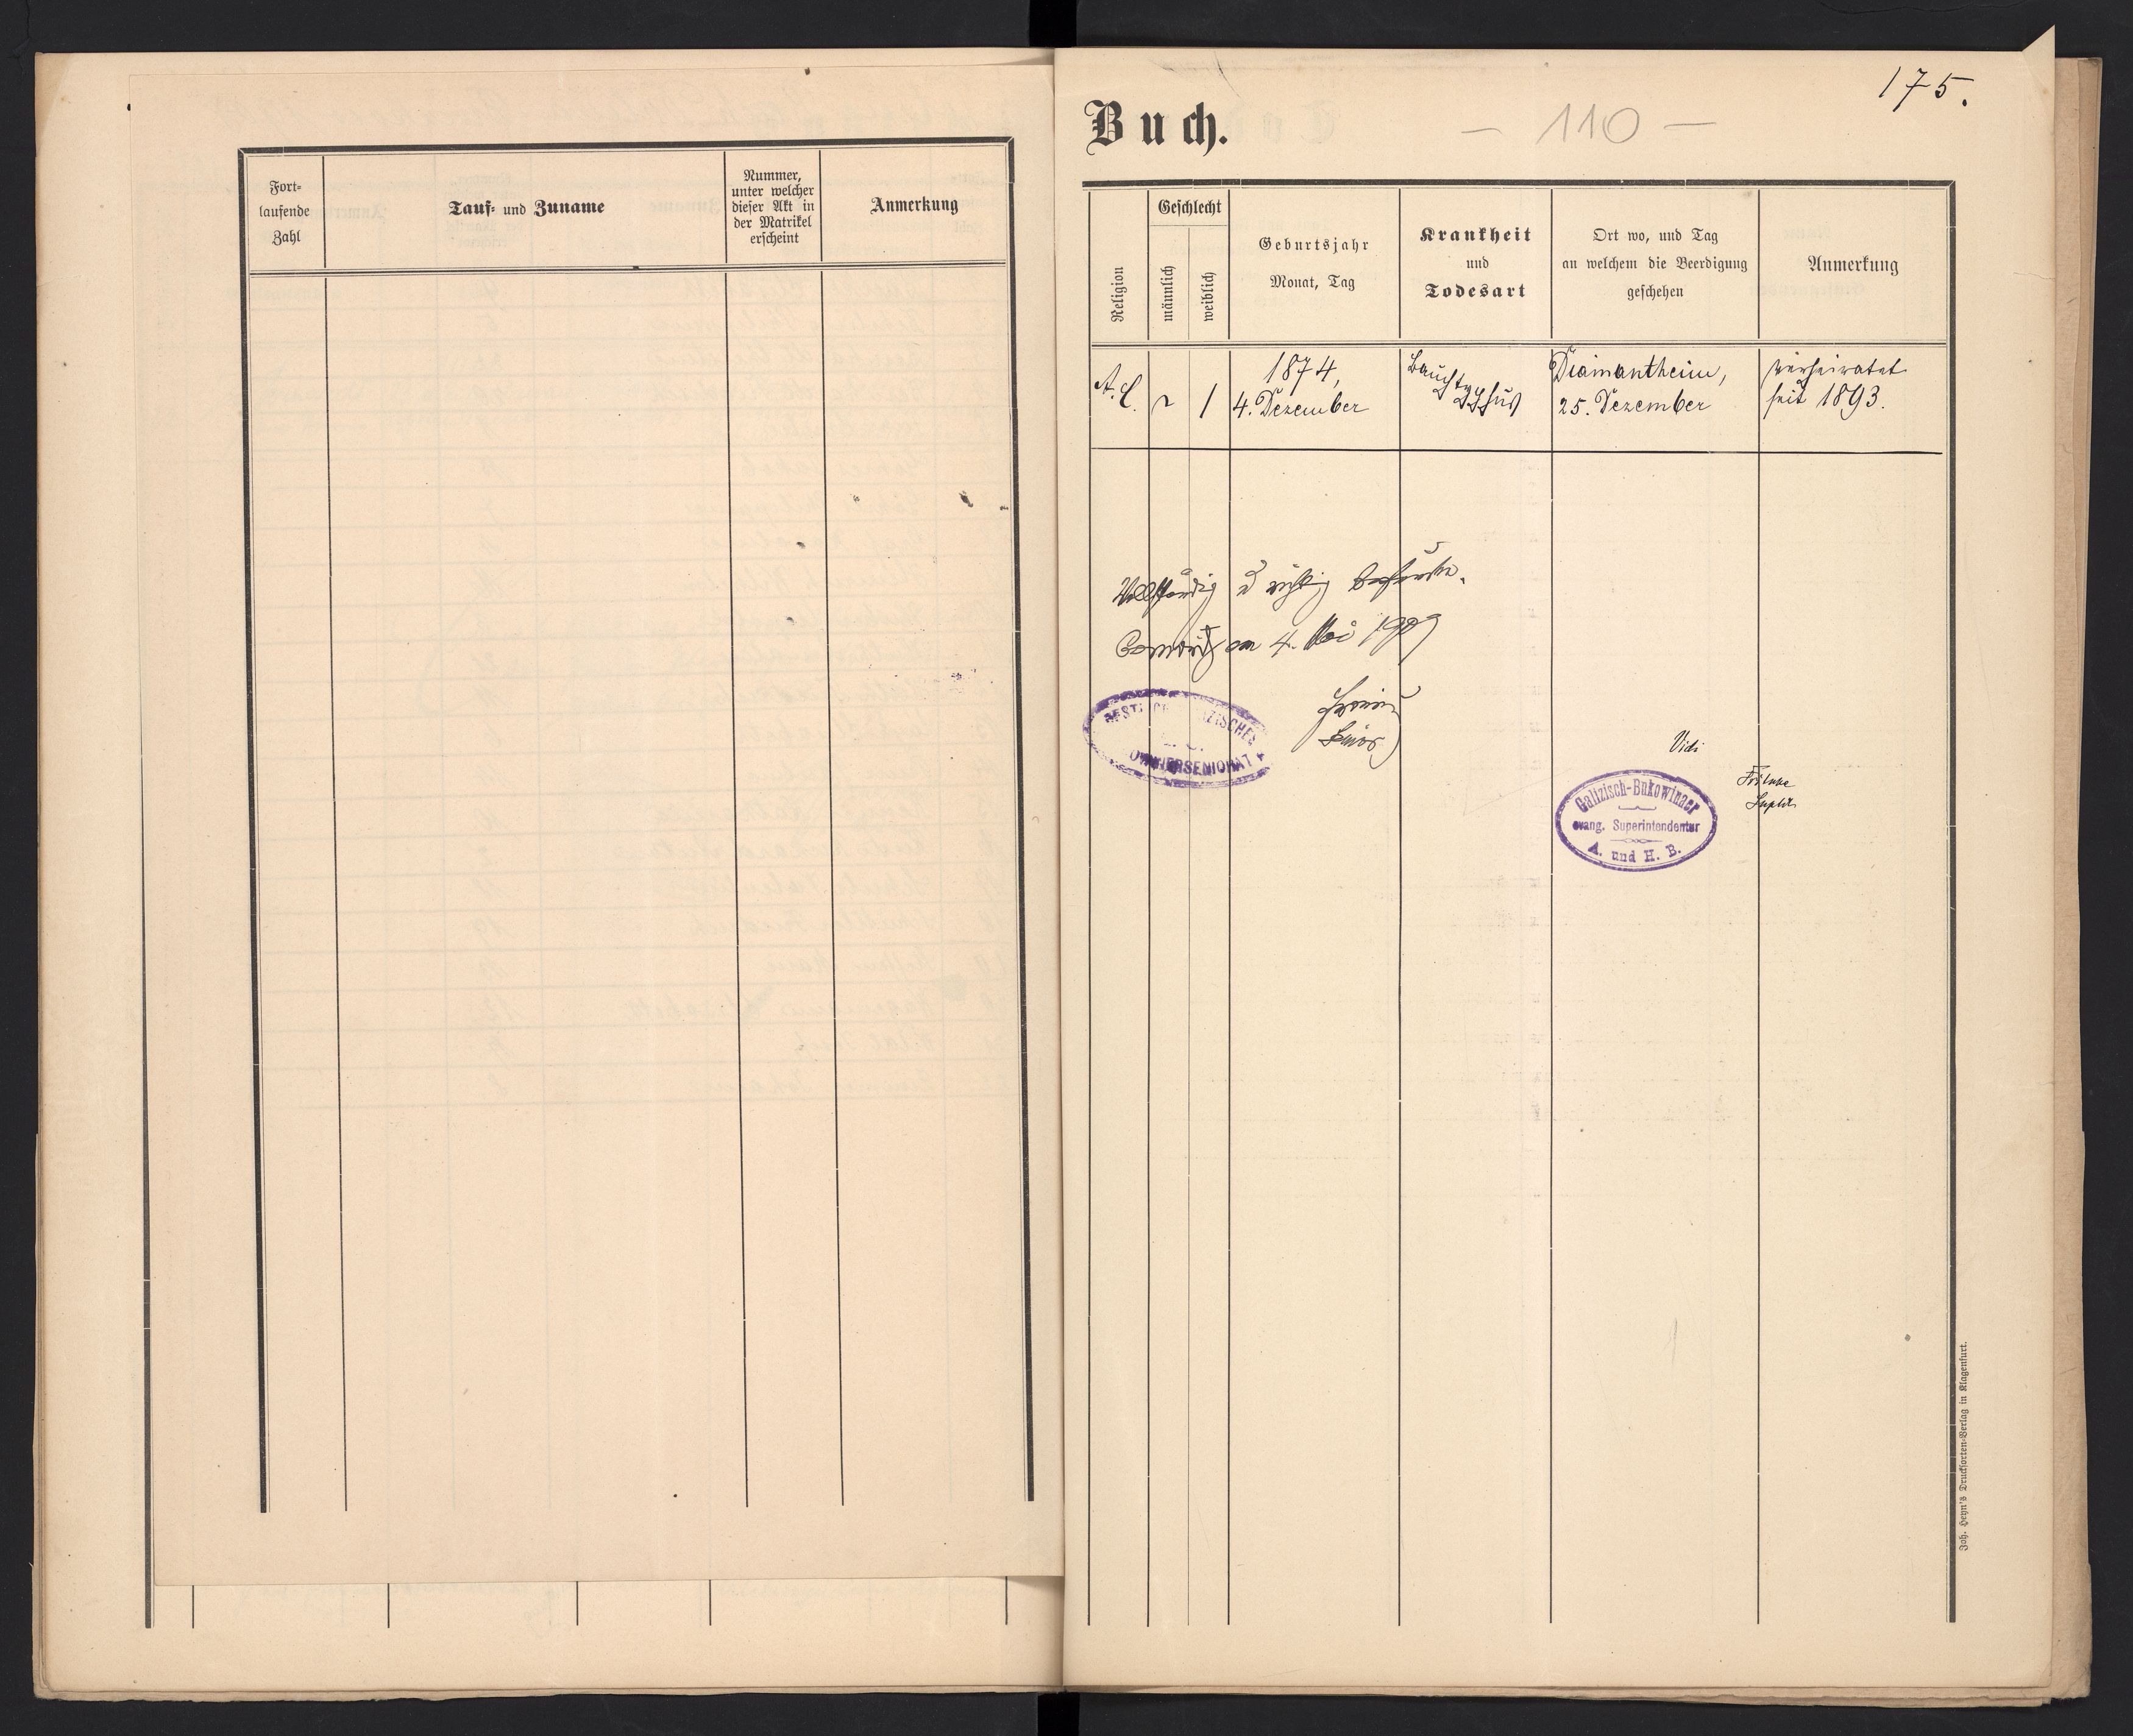 Fort-
laufende
Zahl
Tauf- und Zuname
Nummer,
unter welcher
dieser Akt in
der Matrikel
erscheint
Anmerkung
175.
Buch.
– 110 –
Religion
Geschlecht
männlich
weiblich
Geburtsjahr
Monat, Tag
Krankheit
und
Todesart
Ort wo, und Tag
an welchem die Beerdigung
geschehen
Anmerkung
A. C.
1
1874,
4. Dezember
Bauchtyphus
Diamantheim,
25. Dezember
verheiratet
seit 1893.
Vollständig u richtig befunden.
am 4. Mai 1909
Senior
GALIZISCHES
SENIORAT
Vidi
Fritsche
Suptdt
Galizisch-Bukowinaer
evang. Superintendentur
A. und H. B.
Joh. Heyn's Drucksorten-Verlag in Klagenfurt.